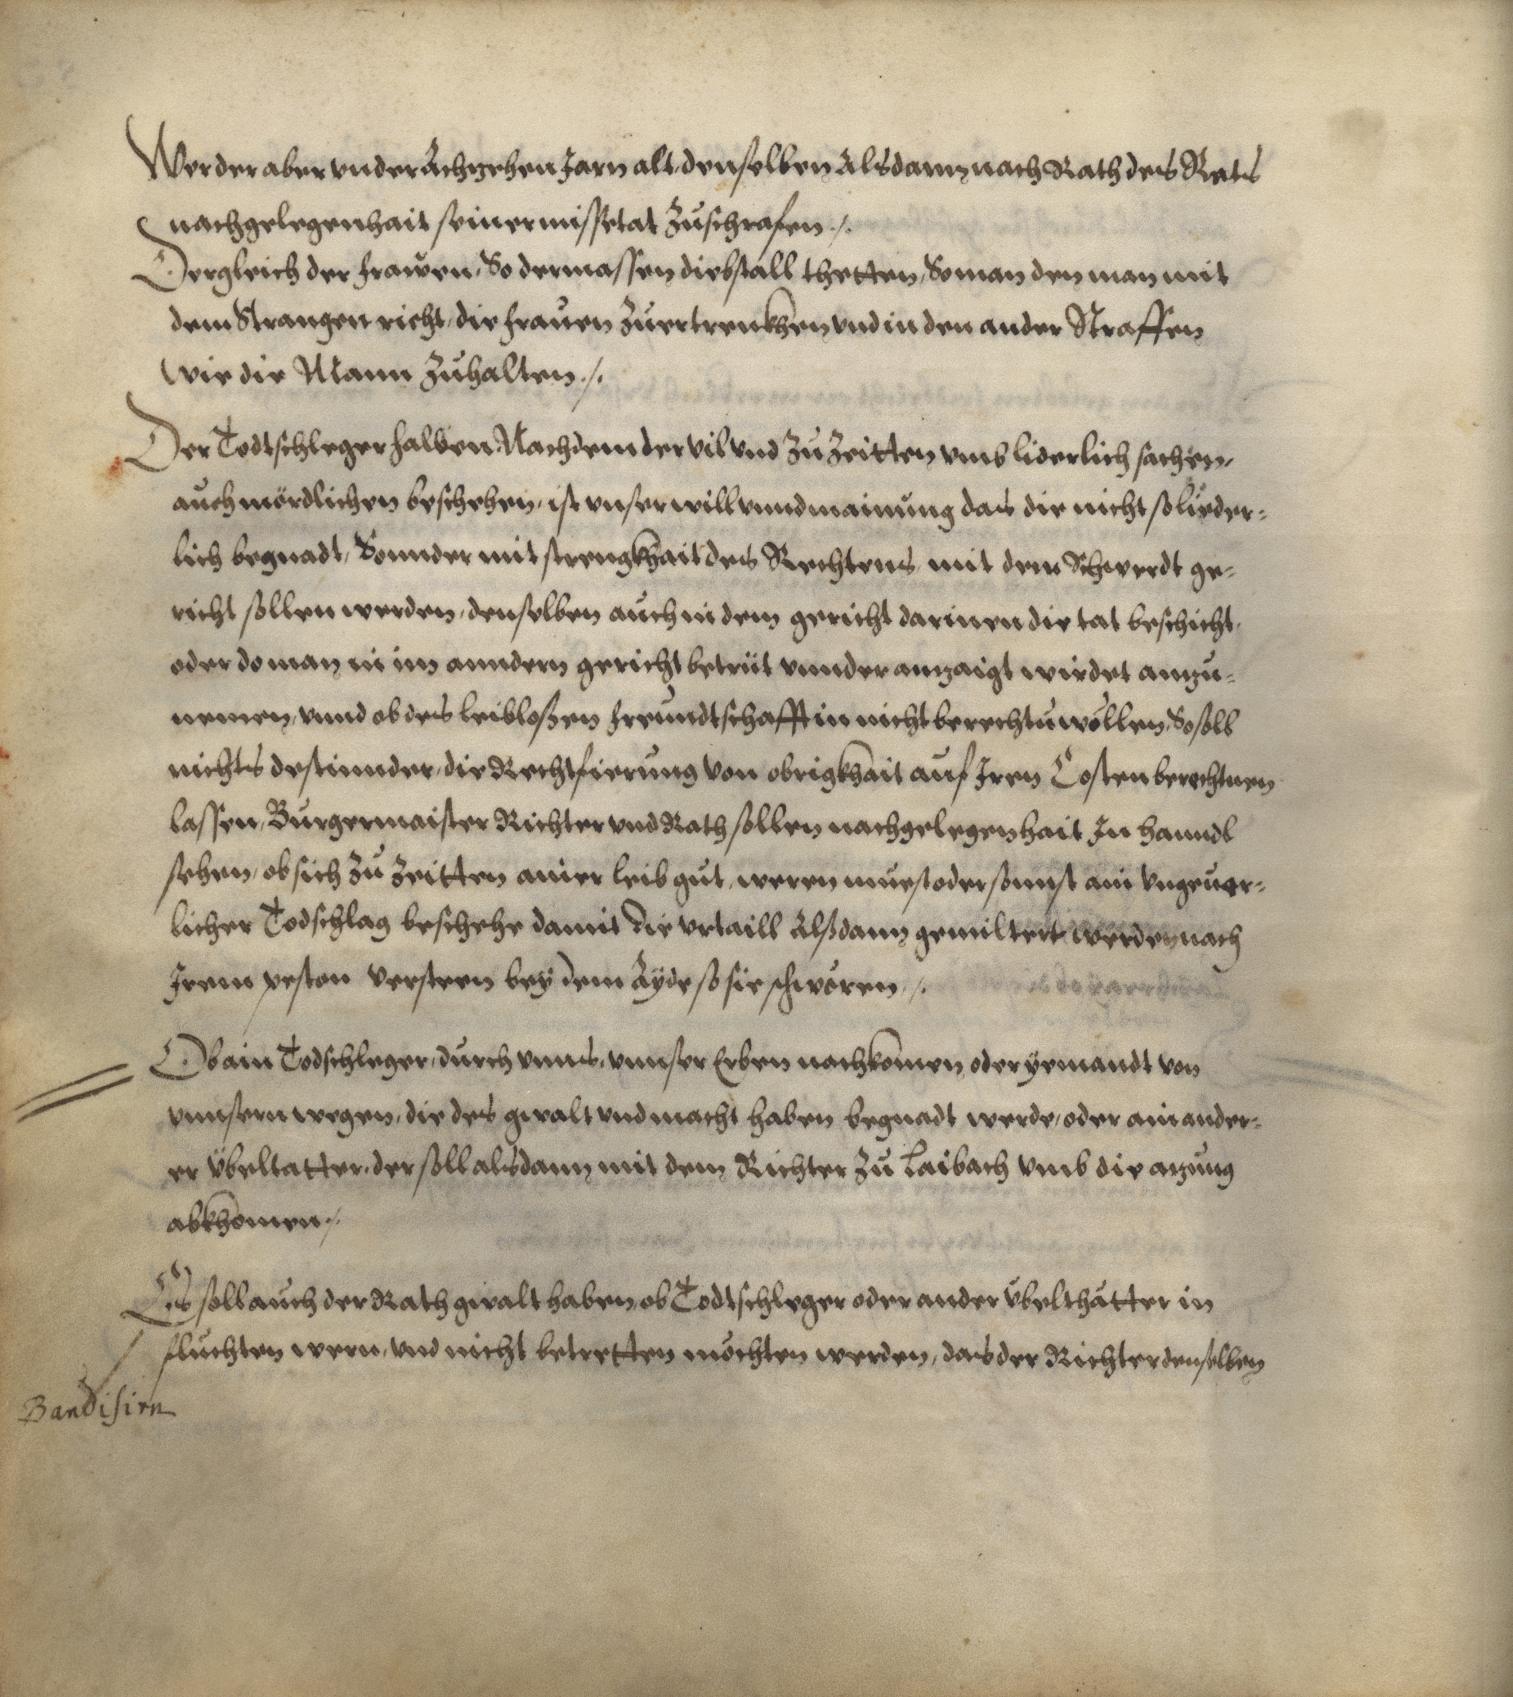 Wer der aber vnder Achzehen Jarn alt, denselben Alsdann nach Rath des Rats
nach gelegenhait seiner missetat Zuschrafen ./.
Dergleich der frawen, So dermassen diebstall thetten, So man den man mit
dem Strangen richt, die frauen Zuertrenkhen vnd in den ander Straffen
wie die Mann Zuhalten ./.
Der Todtschleger halben Nachdem der vil vnd Zu Zeitten vmb liderlich sachen,
auch mördlichen beschehen, ist vnser will vnnd mainung das die nicht so lieder-
lich begnadt, Sonnder mit strengkhait des Rechtens mit dem Schwerdt ge-
richt sollen werden, denselben auch in dem gericht darinnen die tat beschicht,
oder do man in im anndern gericht betrit vnnder anzaigt wirdet anzu-
nemen, vnnd ob des leiblosen freundtschafft in nicht berechtn wöllen, So soll
nichts destinnder, die Rechtfierung von obrigkhait auf Iren Costen berechtnen
lassen, Burgermaister Richter vnd Rath sollen nach gelegenhait In hanndl
sehen, ob sich Zu Zeitten ainer leib gut, weren muest oder sonnst ain vngeuer-
licher Todschlag beschehe damit die vrtaill Alßdann gemiltert werden nach
Irem pesten versteen bey dem Ayde so sie schwören ./.
Ob ain Todschleger, durch vnns, vnnser Erben nachkomen oder yemandt von
vnnsern wegen, die des gwalt vnd macht haben begnadt werde, oder ain ander-
er übeltatter, der soll alsdann mit dem Richter Zu Laibach vmb die azung
abkhomen ./.
Es soll auch der Rath gwalt haben, ob Todtschleger oder ander übelthätter in
fluchten wern, vnd nicht betretten möchten werden, das der Richter denselben
Bandisirn